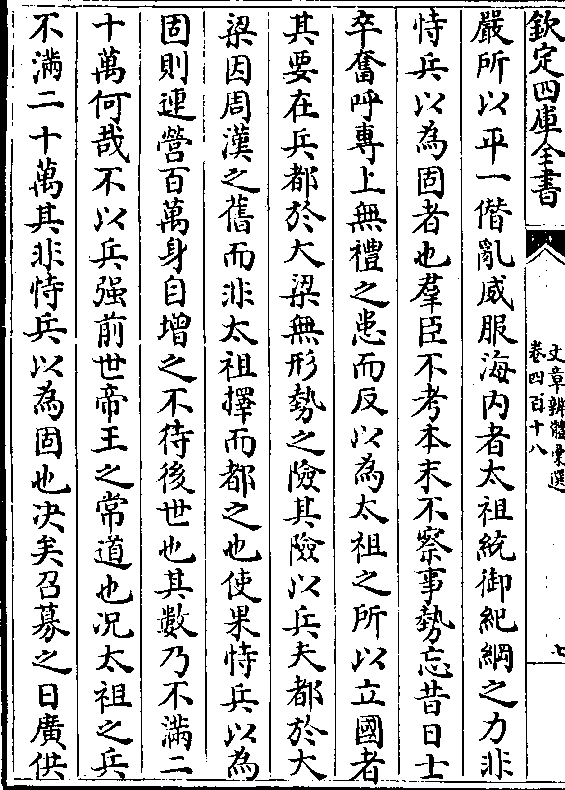 欽定四庫全書
文章辨體彙選
卷四百十八
七
嚴所以平一僭亂威服海内者太祖統御紀綱之力非
恃兵以為固者也羣臣不考本末不察事勢忘昔日士
卒奮呼專上無禮之患而反以為太祖之所以立國者
其要在兵都於大梁無形勢之險其險以兵夫都於大
梁因周漢之舊而非太祖擇而都之也使果恃兵以為
固則連營百萬身自增之不待後世也其數乃不滿二
十萬何哉不以兵强前世帝王之常道也况太祖之兵
不滿二十萬其非恃兵以為固也决矣召募之日廣供